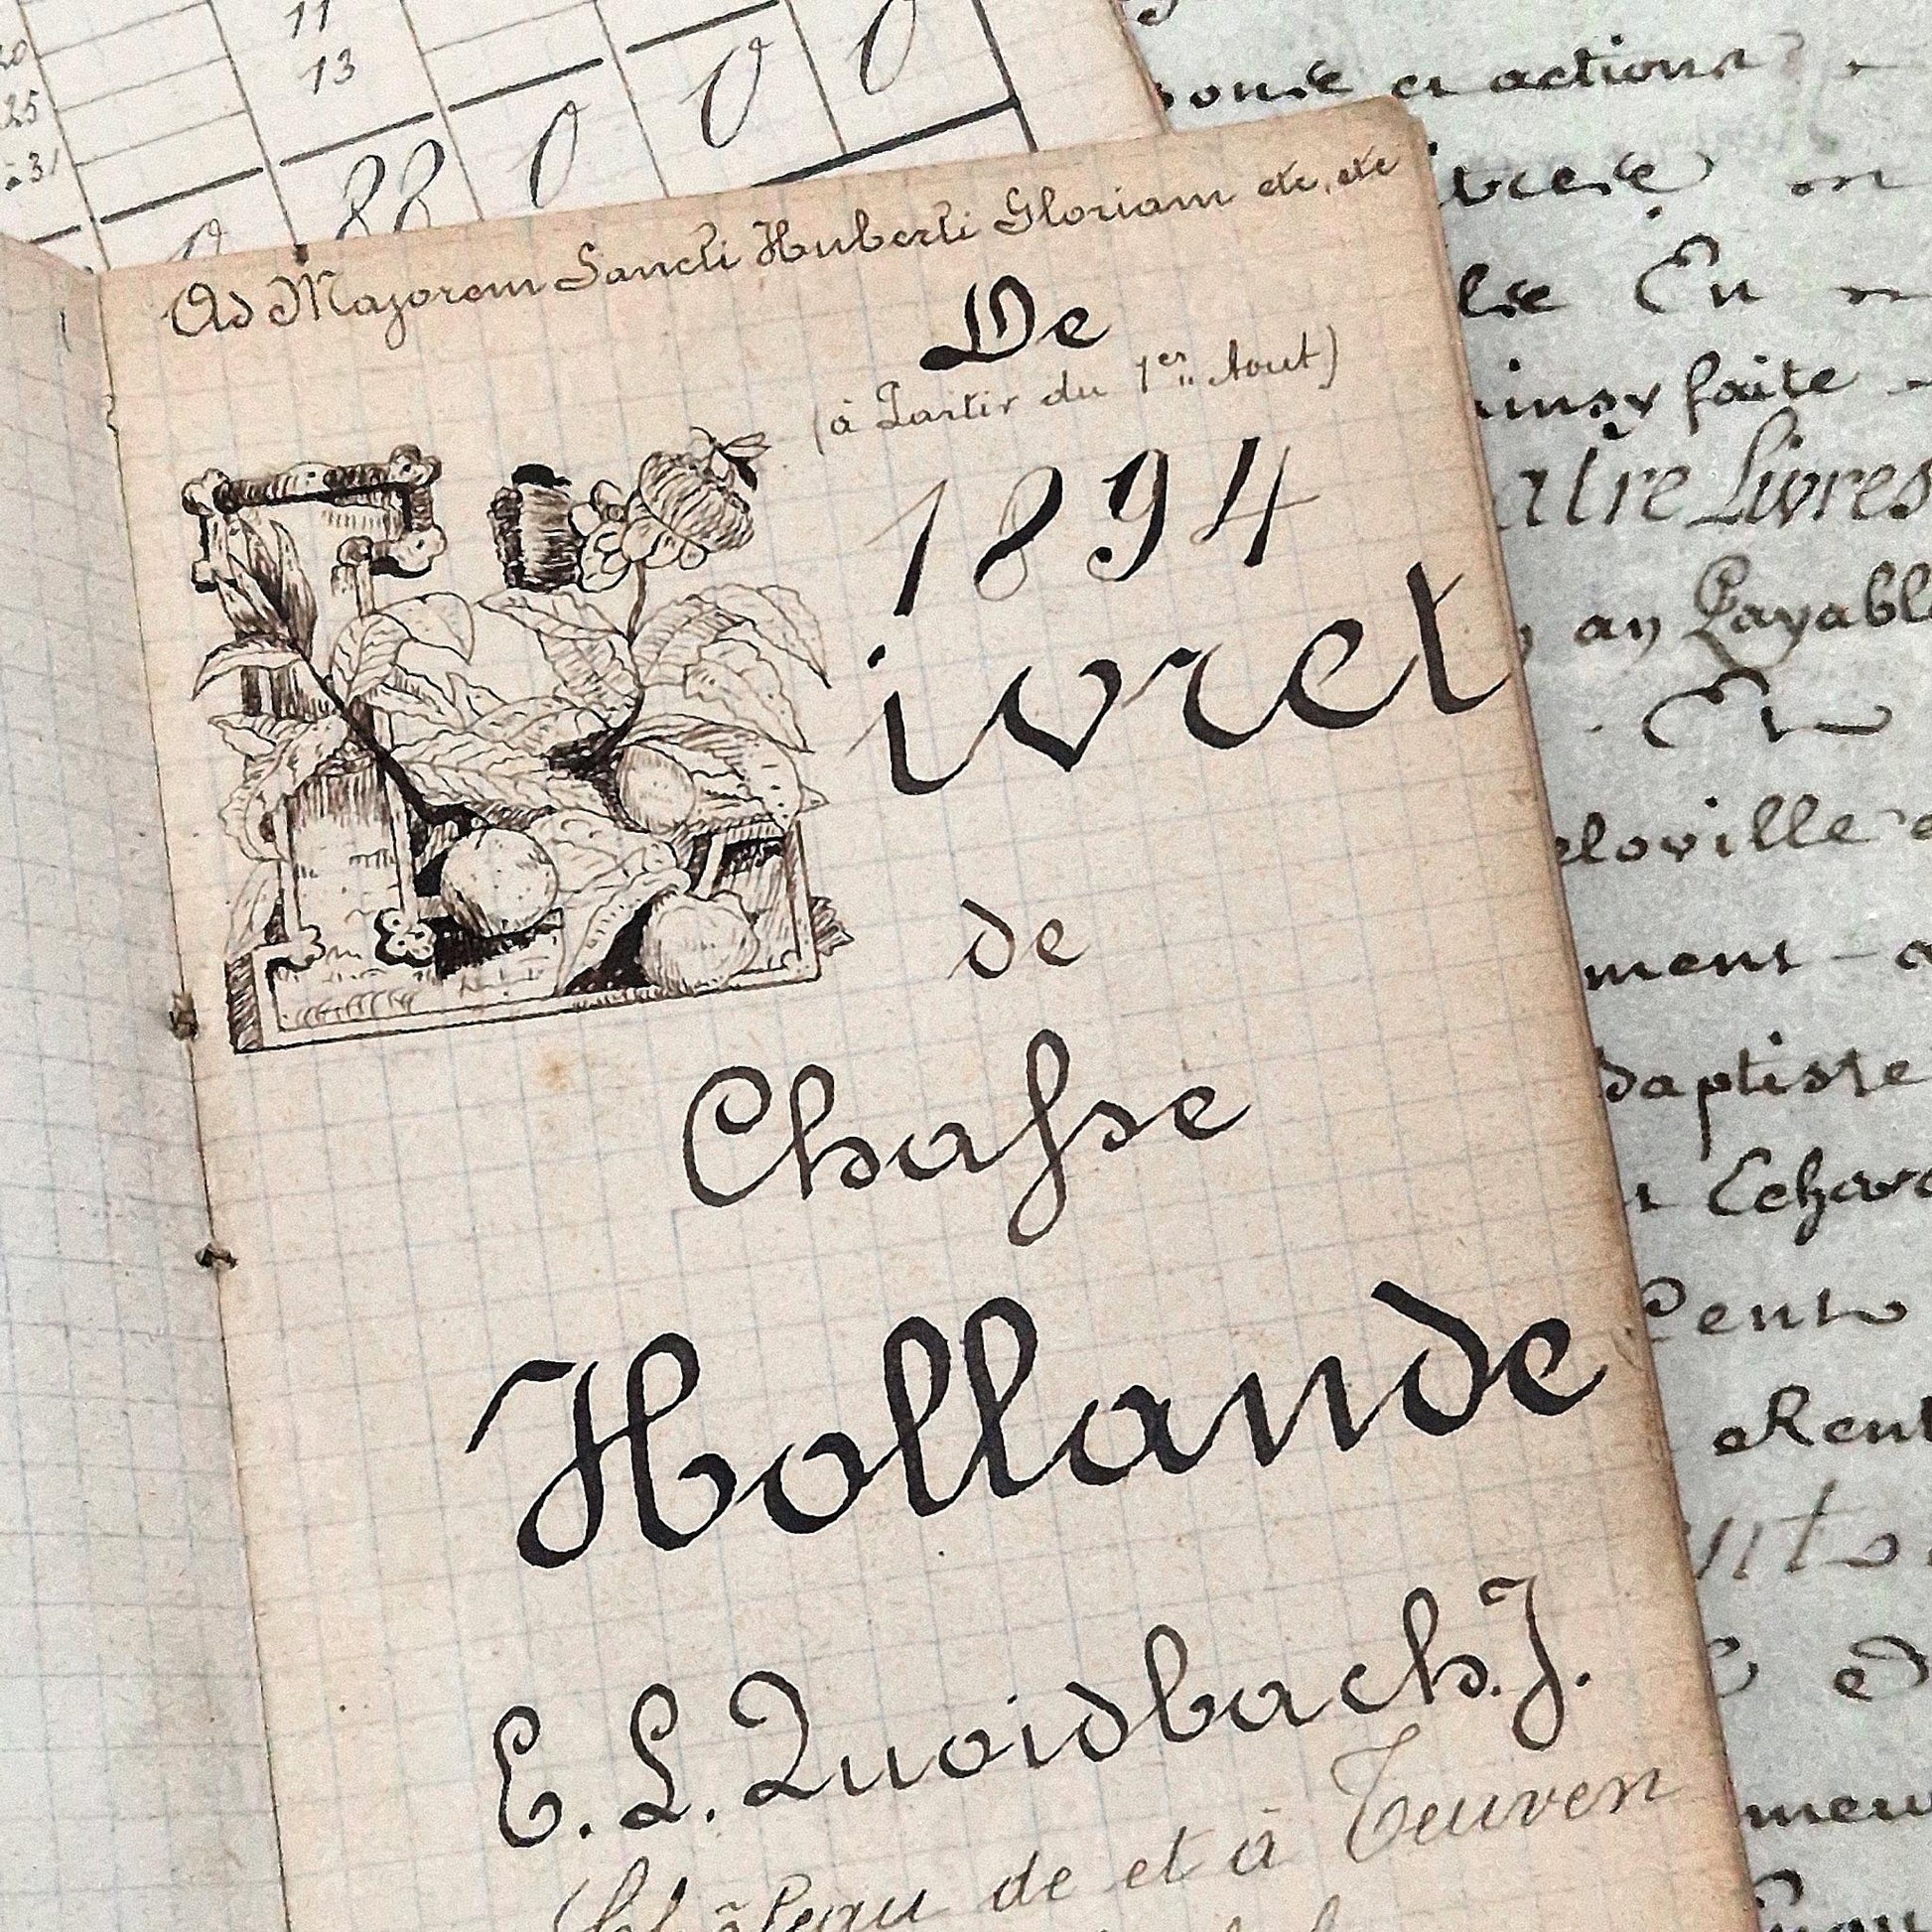 11
20 13
25
31
88 0 0 0
Ad Majorem Sancti Huberti Gloriam etc, etc
De
(à Partir du 1er Aout)
1894
Livret
de
Chasse
Hollande
E. L. Quoidbach. J.
Château de et à Teuven
et actions
En
ainsy faite
atre Livres
an Payabl
eloville
ment
baptiste
Cent
Rent